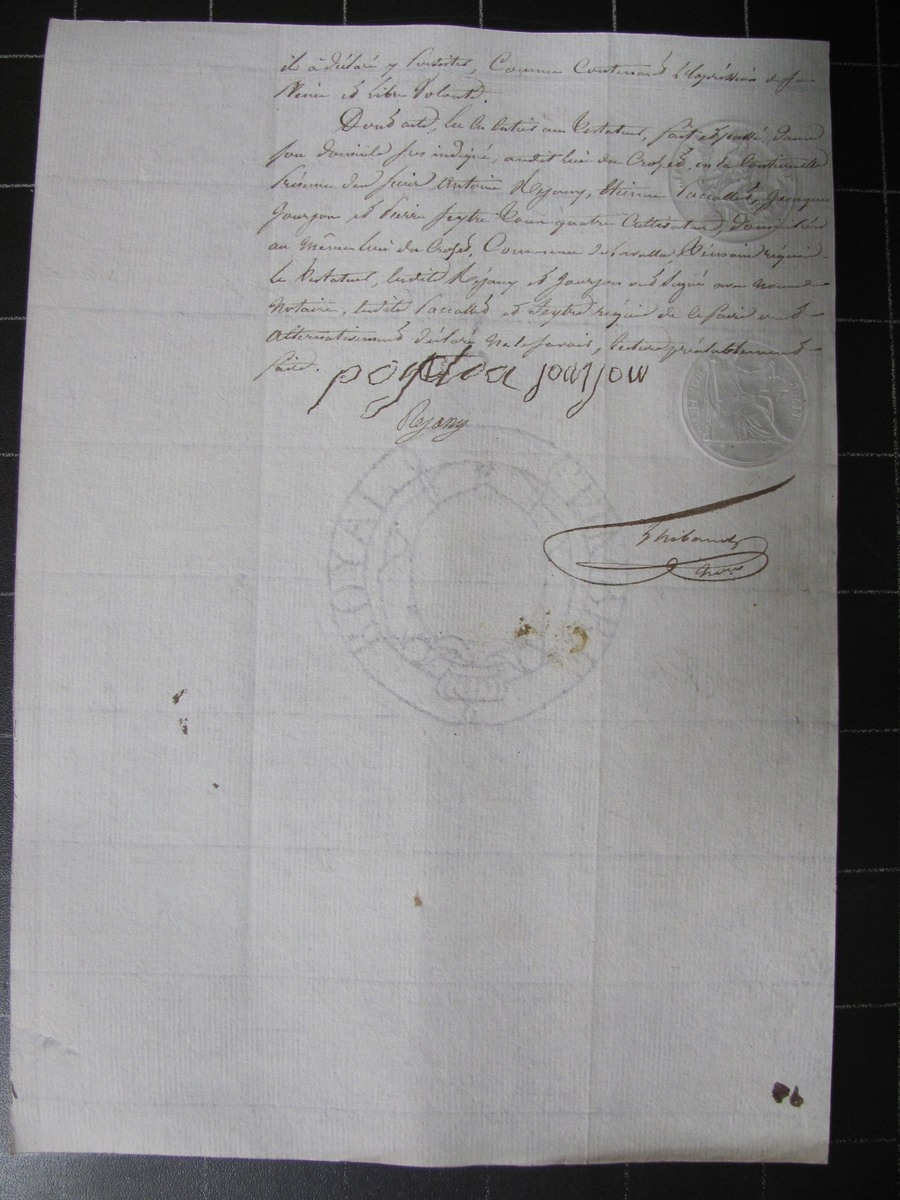 il à déclaré y persister, Comme Contenant l'Expression de sa
pleine et libre Volonté.
Dont acte, lu en Entier au testateur, fait et passé dans
son domicile sus indiqué, audit lieu du Crozet, en la Continuelle
présence des sieurs Antoine Rejany, Etienne Paccallet, Jacques
Jourjon et Pierre Seytre tous quatre Cultivateurs, domiciliés
au même lieu du Crozet, Commune de témoins requis
le testateur, lesdits Rejany et Jourjon ont signé avec nous
Notaire, lesdits Paccallet et Seytre requis de le faire ont
alternativement déclaré ne le savoir, lecture préalablement
faite.
jourjou
Rejany
Thibaud
Nre
ROYAL